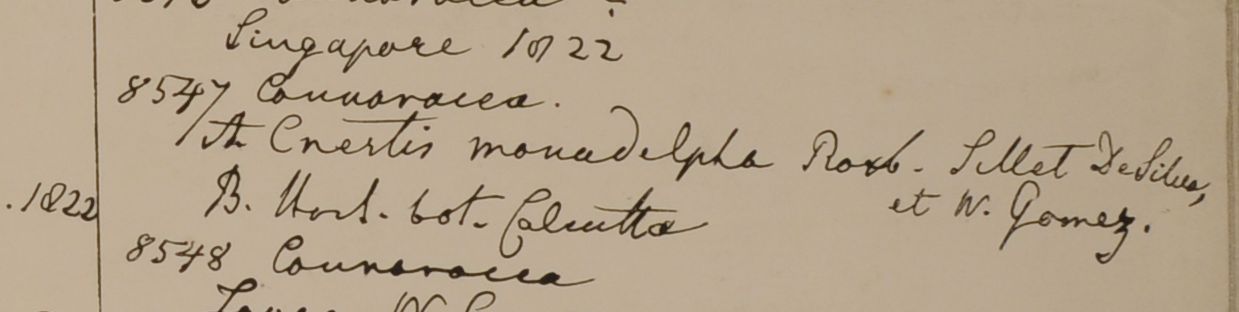 Singapore 1822
8547 Connaracea.
A Cnestis monadelpha Roxb. Sillet DeSilva,
et W. Gomez.
.1822
B. Hort. bot. Calcutta
8548 Connaracea